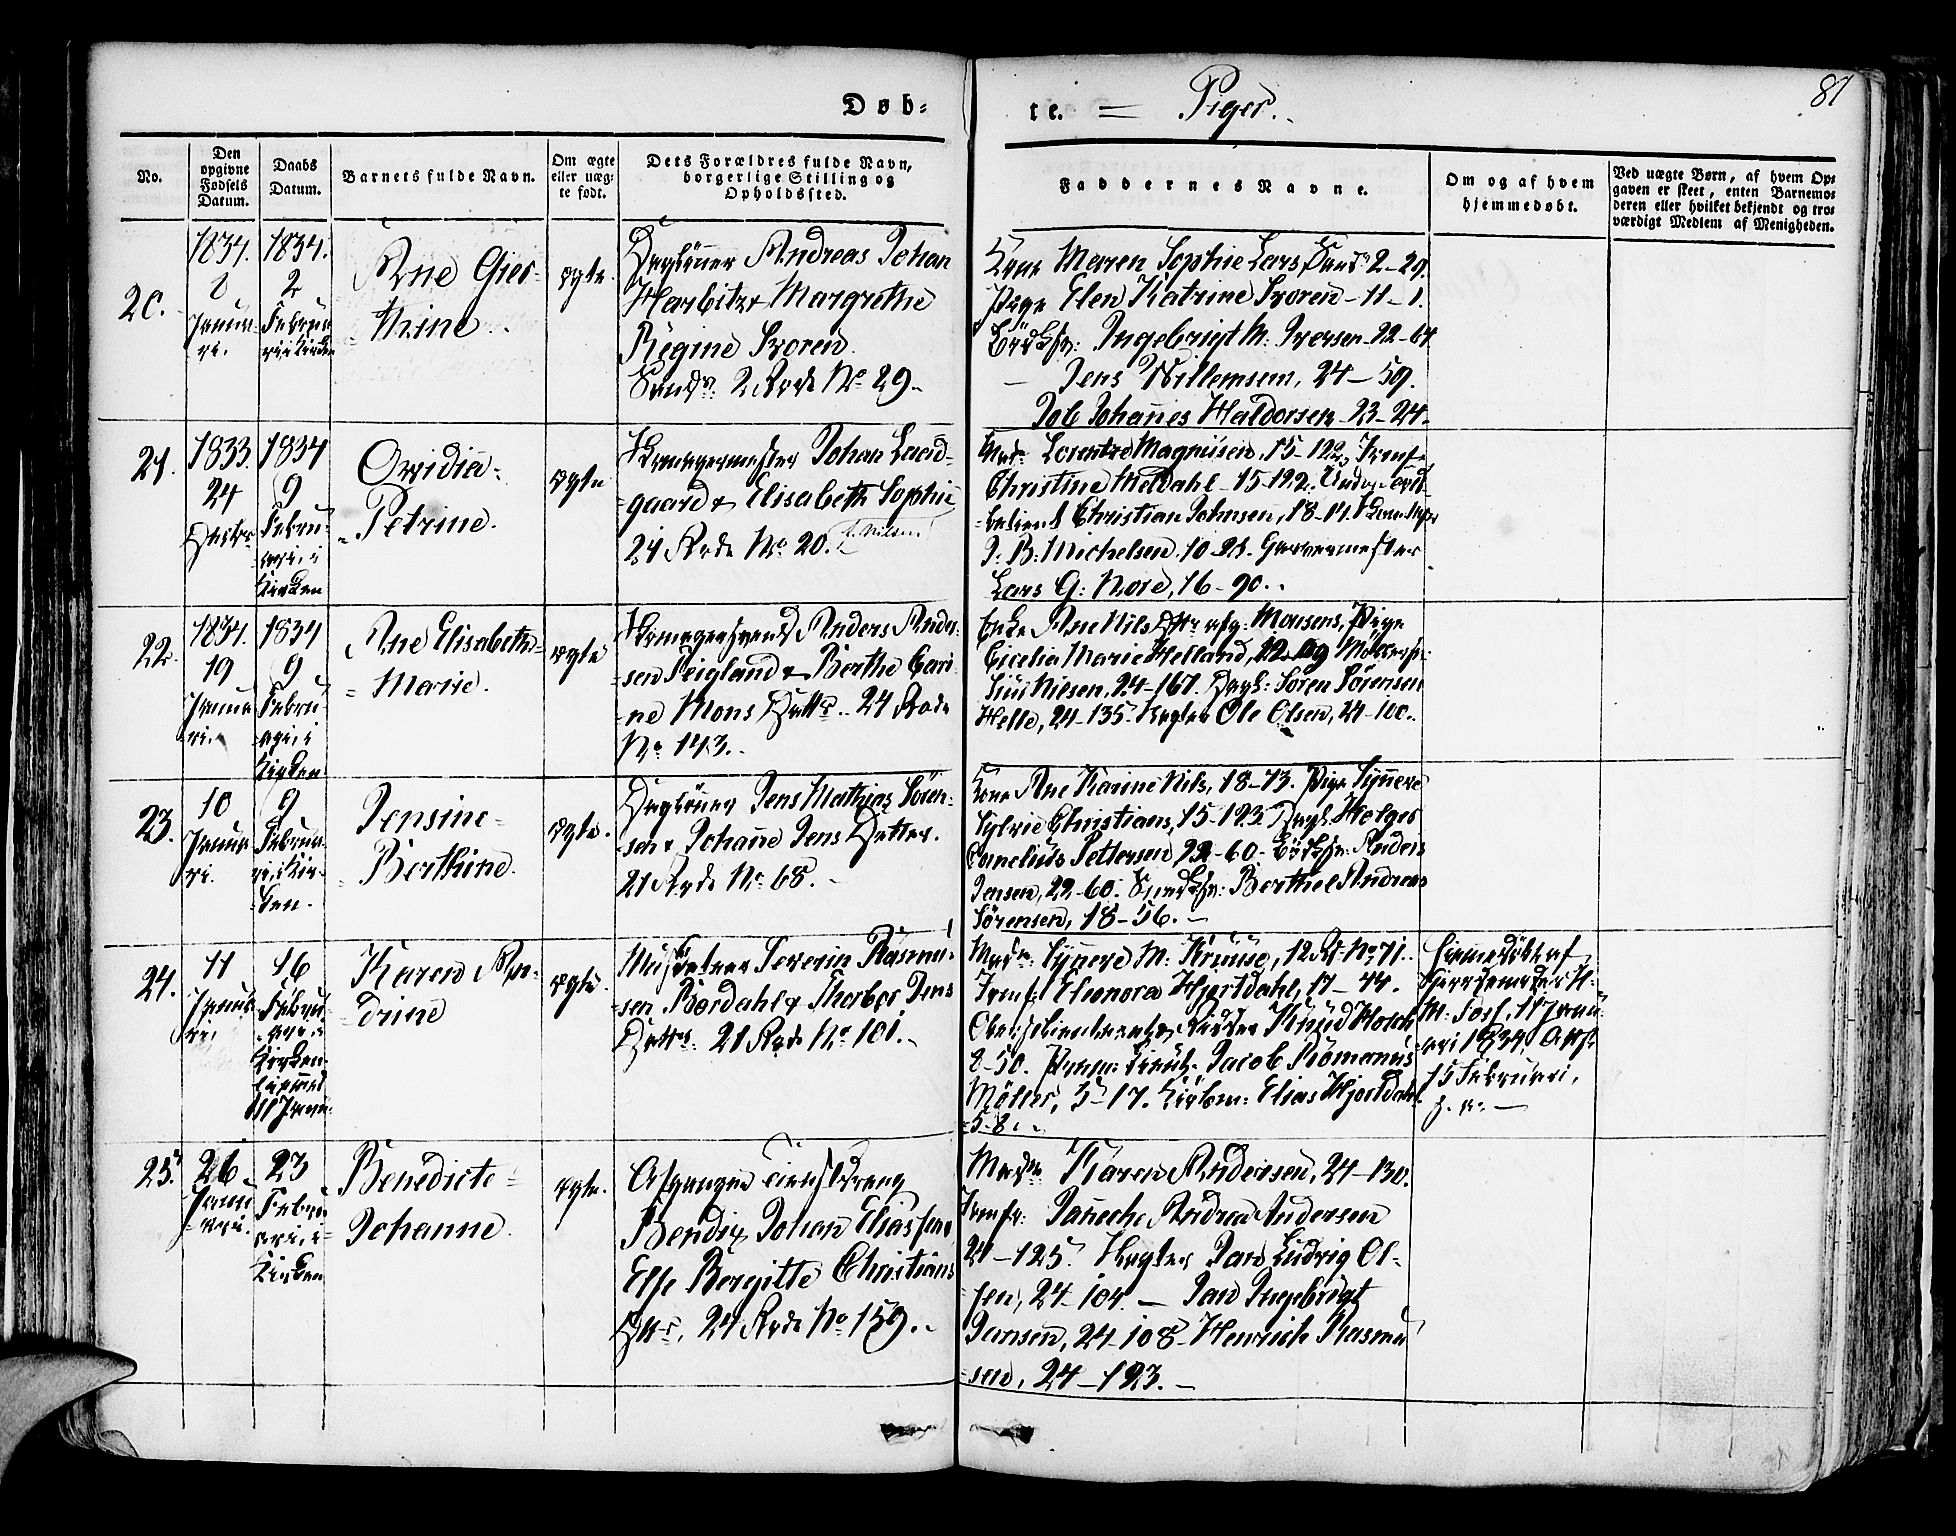 Døb-
te. = Piger.
87
No.
Den opgivne Fødsels Datum.
Daabs Datum.
Barnets fulde Navn.
Om ægte eller uæg-te født.
Dets Forældres fulde Navn, borgerlige Stilling og Opholdssted.
Faddernes Navne.
Om og af hvem hjemmedøbt.
Ved uægte Børn, af hvem Op-
gaven er skeet, enten Barnemo-
deren eller hvilket bekjendt og tro-
værdigt Medlem af Menigheden.
20.
1834.
8
Janua-
ri.
1834.
2
Februa
ri i Kirken
Ane Gjer-
thine.
ægte.
Daglönner Andreas Johan
Harbitz & Margrethe
Regine Svoren
Sandv: 2 Rode No 29.
Kone Maren Sophie Lars, Sandv: 2-29.
Pige Elen Katrine Svoren-11-1.
Bödksv: Ingebrigt M: Iversen-22-64
- Jens Willemsen, 24-59.
Job Johañes Haldorsen-23-24.
21.
1833.
24
Decbr
1834
9
Febru-
ari i
Kirken
Ovidia-
Petrine.
ægte
Skomagermester Johan Lund-
gaard & Elisabeth Sophie
21 Rode No 20. f. Nilsen
Mad: Lorentze Magnüsen, 15-122, Jomf:
Christine Meldahl-15-122.
Christian Johnsen, 18-
J: B: Michelsen, 10-21. Garvermester
Lars G: Nore, 16-90.
22.
1834.
19
Janua
ri.
1834
9
Febru-
ari i
Kirken
Ane Elisabeth-
Marie.
ægte
Skomagersvend Anders Ander-
sen Feigland & Berthe Cari-
ne Mons Datter. 24 Rode
No 143.
Enke Ane Nils Dtr afg: Monsens, Pige
Cicelia Marie Helland, 12-
Nielsen, 24-167. Dagl: Sören Sörensen
Helle, 24-135. Ole Olsen, 24-100.
23.
10
Janua
ri.
9
Februa-
ri i Kir-
ken.
Jensine-
Berthine.
ægte.
Daglönner Jens Mathias Sören-
sen & Johañe Jens Datter.
21 Rode No 68.
Kone Ane Karine Nils, 18-73. Pige Syñeve
Sylvie Christians, 15-123. Dagl: Holger
Cornelius Pettersen 22-60. Bödksv: Anders
Jensen, 22-60. Berthel Andreas
Sörensen, 18-56.
24.
11
Janua
ri.
16
Febru
ari i
Kirken
hjemed
11 Janu:
Karen An-
drine
ægte.
Severin Rasmu-
sen Bordahl & Thorbor Jens
Datter. 21 Rode No 101.
Mad: Syñeve M: Krüüse, 12 R: No 71.
Jomf: Eleonora Hjortdahl, 17-44.
Ridder Knüd Holck
2-50. Prem: Lieut: Jacob Romanus
Möller, 5-17. Elias Hjortdahl
5-8.
Hjemedöbt af
M: Foss, 11 Janu-
ari 1834. Att:
15 Februari,
25.
26
Janu
ari.
23
Febru
ari i
Kirken
Benedicte-
Johanne.
ægte.
Afgangen
Bendix Johan Eliassen
Else Bergitte Christians
Dtr, 24 Rode No 159.
Mad: Karen Andersen, 24-130.
Jomfr: Jañeche Andrea Andersen
24-125. Jan Ludvig Ol-
sen, 24-104. - Jan Ingebrigt
Jansen, 24-108-Henrich Rasmu
sen, 24-123.